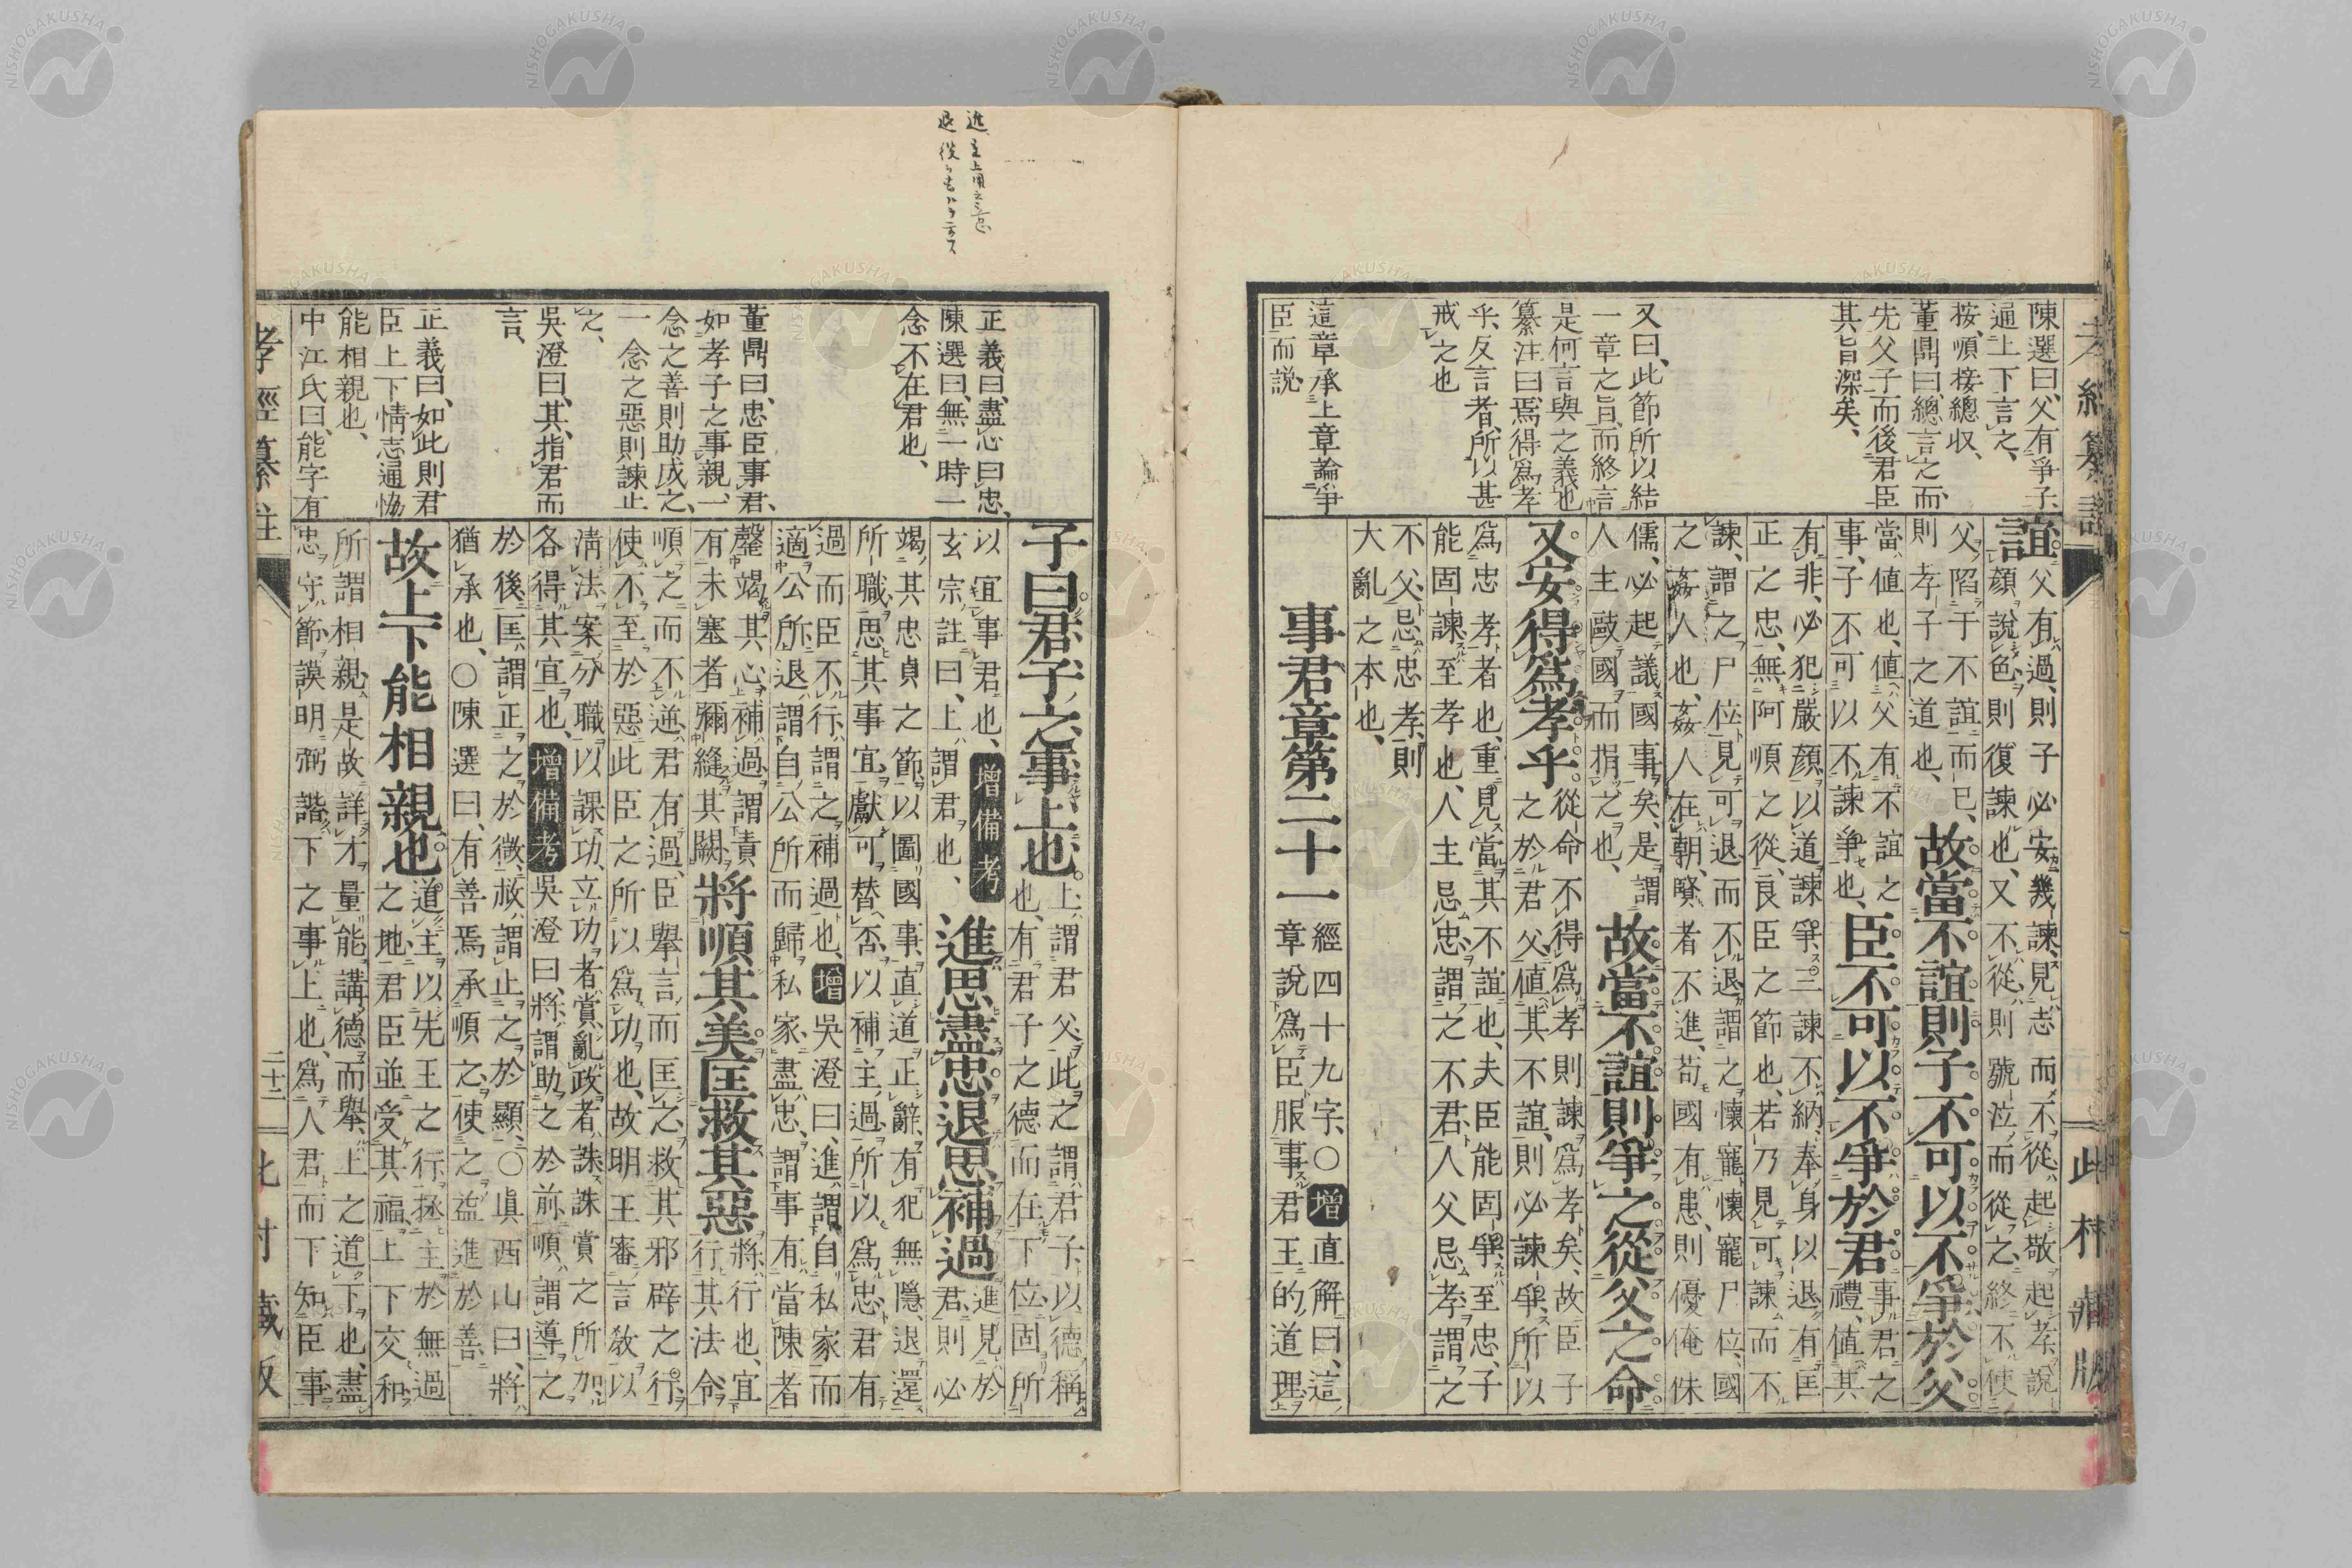 陳選曰、父有爭子、
通上下言之、
按、順接總収、
董鼎曰、總言之而、
先父子而後君臣
其旨深矣、
又曰、此節所以結
一章之旨、而終言
是何言與之義也
纂注曰、焉得爲孝
乎、反言者、所以甚
戒之也
這章承上章論爭
臣而説、
誼 父有過、則子必安幾諫、見志而不從、起敬起孝、說
顏說色、則復諫也、又不從、則號泣而從之、終不使
父陷于不誼而已、
則孝子之道也、
故當不誼則子不可以不爭於父
當値也、値父有不誼之
事、子不可以不諫爭也、
臣不可以不爭於君
事君之
禮、値其
有非、必犯嚴顏、以道諫爭、三諫不納、奉身以退、有匡
正之忠、無阿順之從、良臣之節也、若乃見可諫而不
諫、謂之尸位、見可退而不退、謂之懷寵、懷寵尸位、國
之姦人也、姦人在朝、賢者不進、苟國有患、則優俺侏
儒、必起議國事矣、是謂
人主敺國而指之也、
故當不誼則爭之從父之命
又安得爲孝乎
從命不得爲孝則諫爲孝矣、故臣子
之於君父、値其不誼、則必諫爭、所以
爲忠孝者也、重見當其不誼也、夫臣能固爭、至忠、子
能固諫、至孝也、人主忌忠、謂之不君、人父忌孝、謂之
不父、忌忠孝、則
大亂之本也、
事君章第二十一
經四十九字、〇增直解曰、這
章説爲臣服事君王的道理
正義曰、盡心曰忠、
陳選曰、無一時一
念不在君也、
董鼎曰、忠臣事君、
如孝子之事親、一
念之善則助成之、
一念之惡則諫止
之、
吳澄曰、其、指君而
言、
正義曰、如此則君
臣上下情志通恊
能相親也、
中江氏曰、能字有
子曰君子之事上也
上、謂君父、此之謂君子、以德稱
也、有君子之德而在下位、固所
以宜事君也、增備考
玄宗註曰、上、謂君也、
進思盡忠退思補過
進見於
君、則必
竭其忠貞之節、以圖國事、直道正辭、有犯無隱、退還
所職、思其事宜、獻可替否、以補主過、所以爲忠、君有
過而臣不行、謂之補過也、增吳澄曰、進、謂自私家而
適公所、退、謂自公所而歸私家、盡忠、謂事有當陳者
罄竭其心、補過、謂責
有未塞者彌縫其闕、
將順其美匡救其惡
將、行也、宜
行其法令
順之而不逆、君有過、臣擧言而匡之、救其邪辟之行、
使不至於惡、此臣之所以爲功也、故明王審言敎以
淸法、案分職以課功、立功者賞、亂政者誅、誅賞之所加、
各得其宜也、增備考吳澄曰、將、謂助之於前、順、謂導之
於後、匡、謂正之於微、救、謂止之於顯、〇眞西山曰、將
猶承也、〇陳選曰、有善焉承順之、使之益進於善、
故上下能相親也
道主以先王之行、拯主於無過
之地、君臣並受其福、上下交和、
所謂相親、是故詳才量能、講德而擧、上之道下也、盡
忠守節、謨明弼諧、下之事上也、爲人君而下知臣事、
孝經纂註
二十二